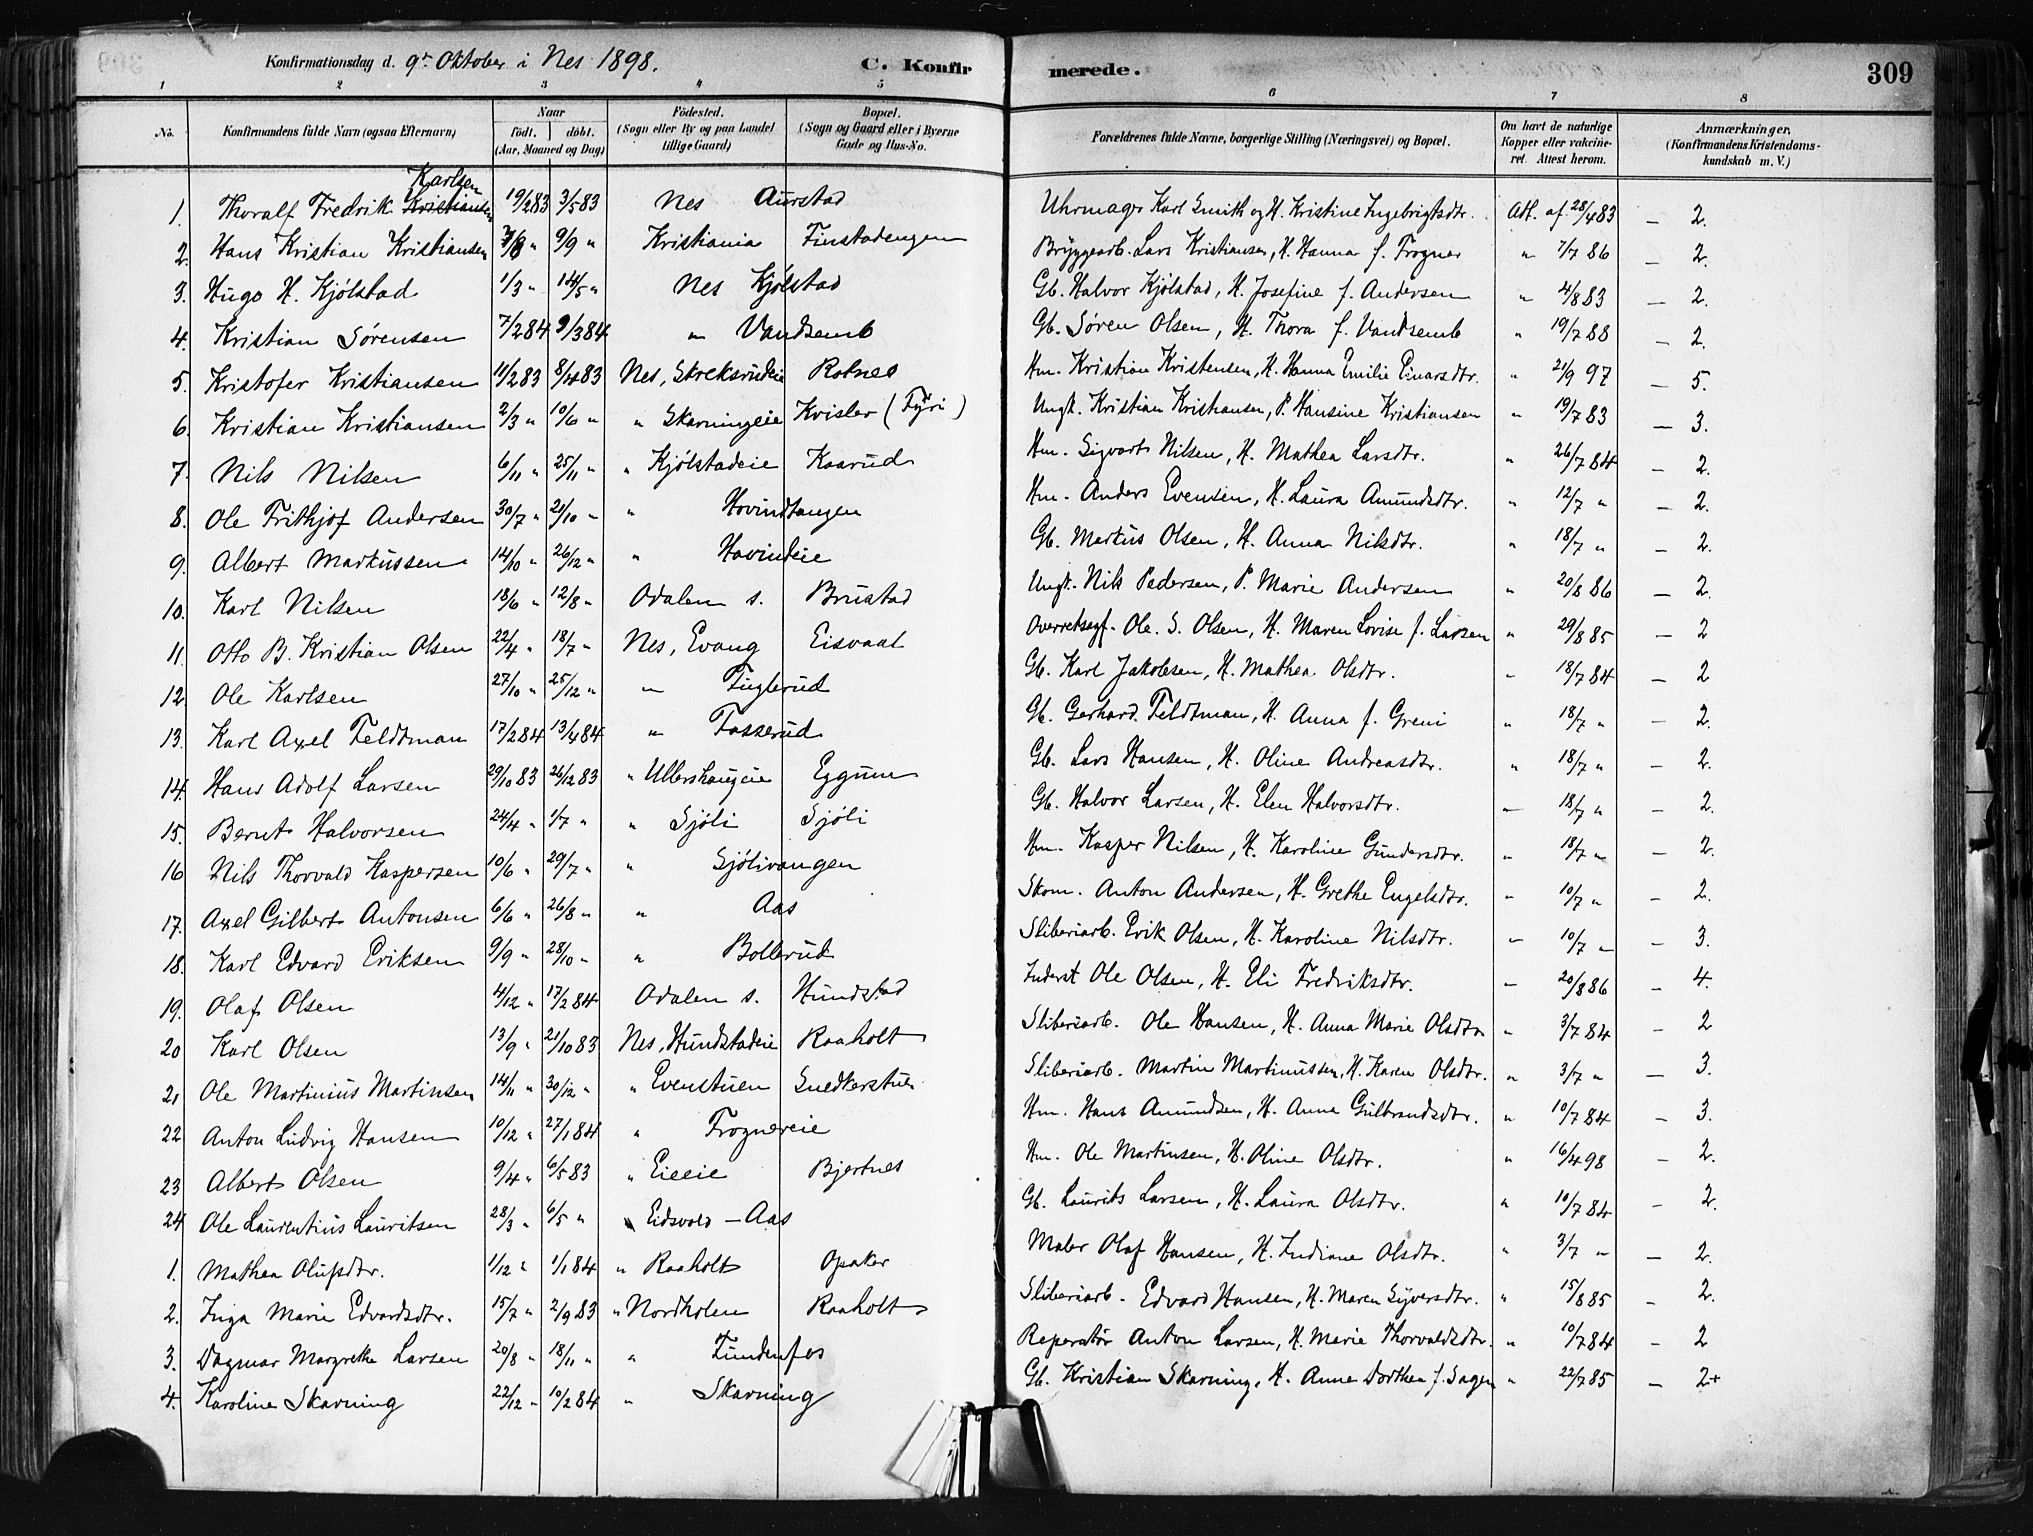 Konfirmationsdag d. 9de Oktober i Nes 1898.
C. Konfirmerede.
309
1 2 3 4 5 6 7 8
No. Konfirmandens fulde Navn (ogsaa Efternavn) Naar født. døbt. (Aar, Maaned og Dag) Fødested. (Sogn eller By og paa Landet tillige Gaard) Bopæl. (Sogn og Gaard eller i Byerne Gade og Hus-No. Forældrenes fulde Navne, borgerlige Stilling (Næringsvei) og Bopæl. Om havt de naturlige Kopper eller vakcineret. Attest herom. Anmærkninger. (Konfirmandens Kristendomskundskab m. V.)
Karlsen
1. Thoralf Fredrik Kristiansen 19/2 83 3/5 83 Nes Aurstad Uhrmager Karl Smith og H. Kristine Ingebrigtsdtr. Att. af 28/4 83 — 2.
2. Hans Kristian Kristiansen 7/8 " 9/9 " Kristiania Finstadengen Bryggearb. Lars Kristiansen, H. Hanna f. Frogner " 7/7 86 — 2.
3. Hugo H. Kjølstad 1/3 " 14/5 " Nes Kjølstad Gb. Halvor Kjølstad, H. Josefine f. Andersen " 4/8 83 — 2.
4. Kristian Sørensen 7/2 84 9/3 84 " Vandsemb Gb. Søren Olsen, H. Thora f. Vandsemb " 19/7 88 — 2.
5. Kristofer Kristiansen 11/2 83 8/4 83 Nes, Skreksrudeie Rotnes Hm. Kristian Kristensen, H. Hanna Emilie Einarsdtr. " 21/9 97 — 5.
6. Kristian Kristiansen 2/3 " 10/6 " " Skarningeie Kvisler (Fyri) Ungk. Kristian Kristiansen, P. Hansine Kristiansen " 19/7 83 — 3.
7. Nils Nilsen 6/11 " 25/11 " " Kjølstadeie Kaarud Hm. Sigvart Nilsen, H. Mathea Larsdtr. " 26/7 84 — 2.
8. Ole Frithjof Andersen 30/7 " 21/10 " " Hovindtangen Hm. Anders Evensen, H. Laura Amundsdtr. " 12/7 " — 2.
9. Albert Markussen 14/10 " 26/12 " " Hovindeie Gb. Markus Olsen, H. Anna Nilsdtr. " 18/7 " — 2.
10. Karl Nilsen 18/6 " 12/8 " Odalen s. Brustad Ungk. Nils Pedersen, P. Marie Andersen " 20/8 86 — 2.
11. Otto B. Kristian Olsen 22/4 " 18/7 " Nes, Evang Eisvaal Ole. S. Olsen, H. Maren Lovise f. Larsen " 29/8 85 — 2
12 Ole Karlsen 27/10 " 25/12 " " Fuglerud Gb. Karl Jakobsen, H. Mathea Olsdtr. " 18/7 84 — 2
13. Karl Axel Feldtman 17/2 84 13/4 84 " Fosserud Gb. Gerhard Feldtman, H. Anna f. Greni " 18/7 " — 2.
14. Hans Adolf Larsen 29/10 83 26/12 83 " Ullershaugeie Eggum Gb. Lars Hansen, H. Oline Andreasdtr. " 18/7 " — 2.
15. Bernt Halvorsen 24/4 " 1/7 " " Sjøli Sjøli Gb. Halvor Larsen, H. Elen Halvorsdtr. " 18/7 " — 2.
16 Nils Thorvald Kaspersen 10/6 " 29/7 " " Sjølivangen Hm. Kasper Nilsen, H. Karoline Gundersdtr. " 18/7 " — 2.
17. Axel Gilbert Antonsen 6/6 " 26/8 " " Aas Skom. Anton Andersen, H. Grethe Engelsdtr. " 10/7 " — 2.
18. Karl Edvard Eriksen 9/9 " 28/10 " " Bollerud Sliberiarb. Erik Olsen, H. Karoline Nilsdtr. " 10/7 " — 3.
19. Olaf Olsen 4/12 " 17/2 84 Odalen s. Hundstad Inderst Ole Olsen, H. Eli Fredriksdtr. " 20/8 86 — 4.
20 Karl Olsen 13/9 " 21/10 83 Nes, Hundstadeie Raaholt Sliberiarb. Ole Hansen, H. Anna Marie Olsdtr " 3/7 84 — 2
21 Ole Martinius Martinsen 14/11 " 30/12 " " Evenstuen Snedkerstuen Sliberiarb. Martin Martinussen, H. Karen Olsdtr. " 3/7 " — 3.
22 Anton Ludvig Hansen 10/12 " 27/1 84 " Frognereie Hm. Hans Amundsen, H. Anna Gulbrandsdtr. " 10/7 84 — 3.
23 Albert Olsen 9/4 " 6/5 83 " Eieeie Bjertnes Hm. Ole Martinsen, H. Oline Olsdtr. " 16/4 98 — 2.
24 Ole Laurentius Lauritsen 28/3 " 6/5 " " Eidsvold — Aas Gb. Laurits Larsen, H. Laura Olsdtr. " 10/7 84 — 2.
1. Mathea Olufsdtr. 1/12 " 1/1 84 " Raaholt Opaker Maler Olaf Hansen, H. Indiane Olsdtr. " 3/7 " — 2.
2. Inga Marie Edvardsdtr. 15/7 " 2/9 83 " Nordholen Raaholt Sliberiarb. Edvard Hansen, H. Maren Syversdtr. " 15/8 85 — 2.
3. Dagmar Margrethe Larsen 20/8 " 18/11 " " Fundenfos Reperatør Anton Larsen, H. Marie Thorvaldsdtr. " 10/7 84 — 2
4. Karoline Skarning 22/12 " 10/2 84 " Skarning Gb. Kristian Skarning, H. Anne Dorthea f. Sagen " 22/7 85 — 2+